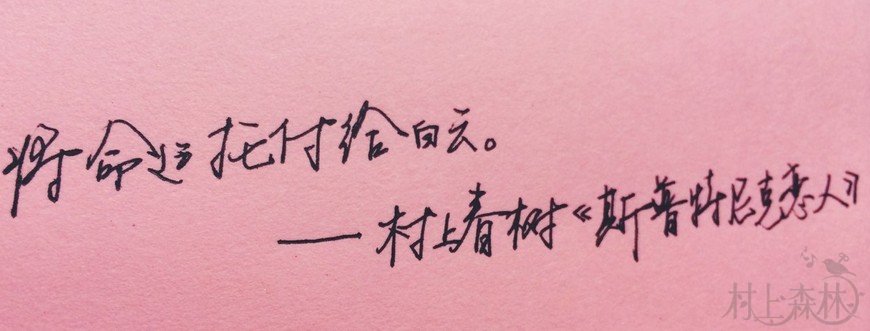 将命运托付给白云。
——村上春树《斯普特尼克恋人》
村上森林